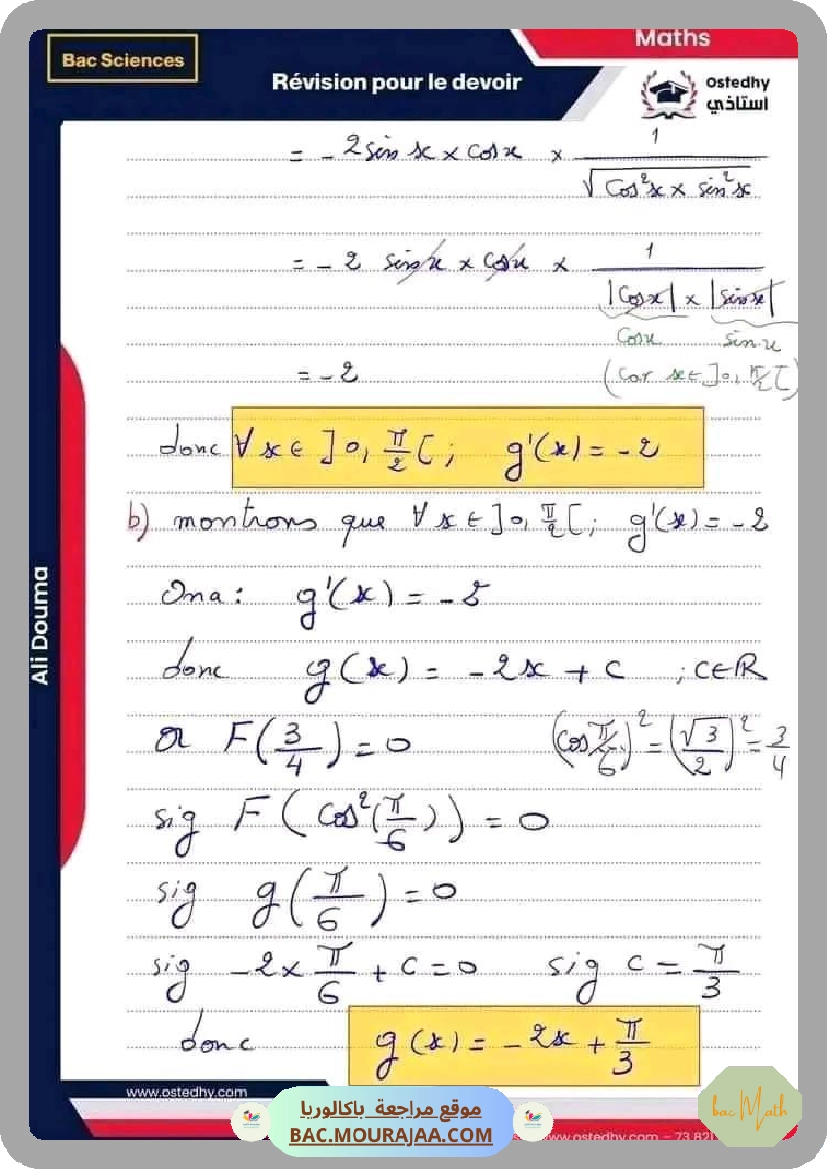 Maths
Bac Sciences
Révision pour le devoir
Ostedhy
استاذي
= - 2 sin x × cos x × 1 / √(cos²x × sin²x)
= - 2 sin x × cos x × 1 / (|cos x| × |sin x|)
cos x sin x
= - 2 (car x ∈ ]0, π/2[)
donc ∀ x ∈ ]0, π/2[ ; g'(x) = - 2
b) montrons que ∀ x ∈ ]0, π/2[ ; g'(x) = - 2
Ona : g'(x) = - 2
donc g(x) = - 2x + c ; c ∈ ℝ
or F(3/4) = 0 (cos π/6)² = (√3/2)² = 3/4
sig F(cos²(π/6)) = 0
sig g(π/6) = 0
sig - 2 × π/6 + c = 0 sig c = π/3
donc g(x) = - 2x + π/3
Ali Douma
www.ostedhy.com
موقع مراجعة باكالوريا
BAC.MOURAJAA.COM
bac Math
www.ostedhy.com – 73.821